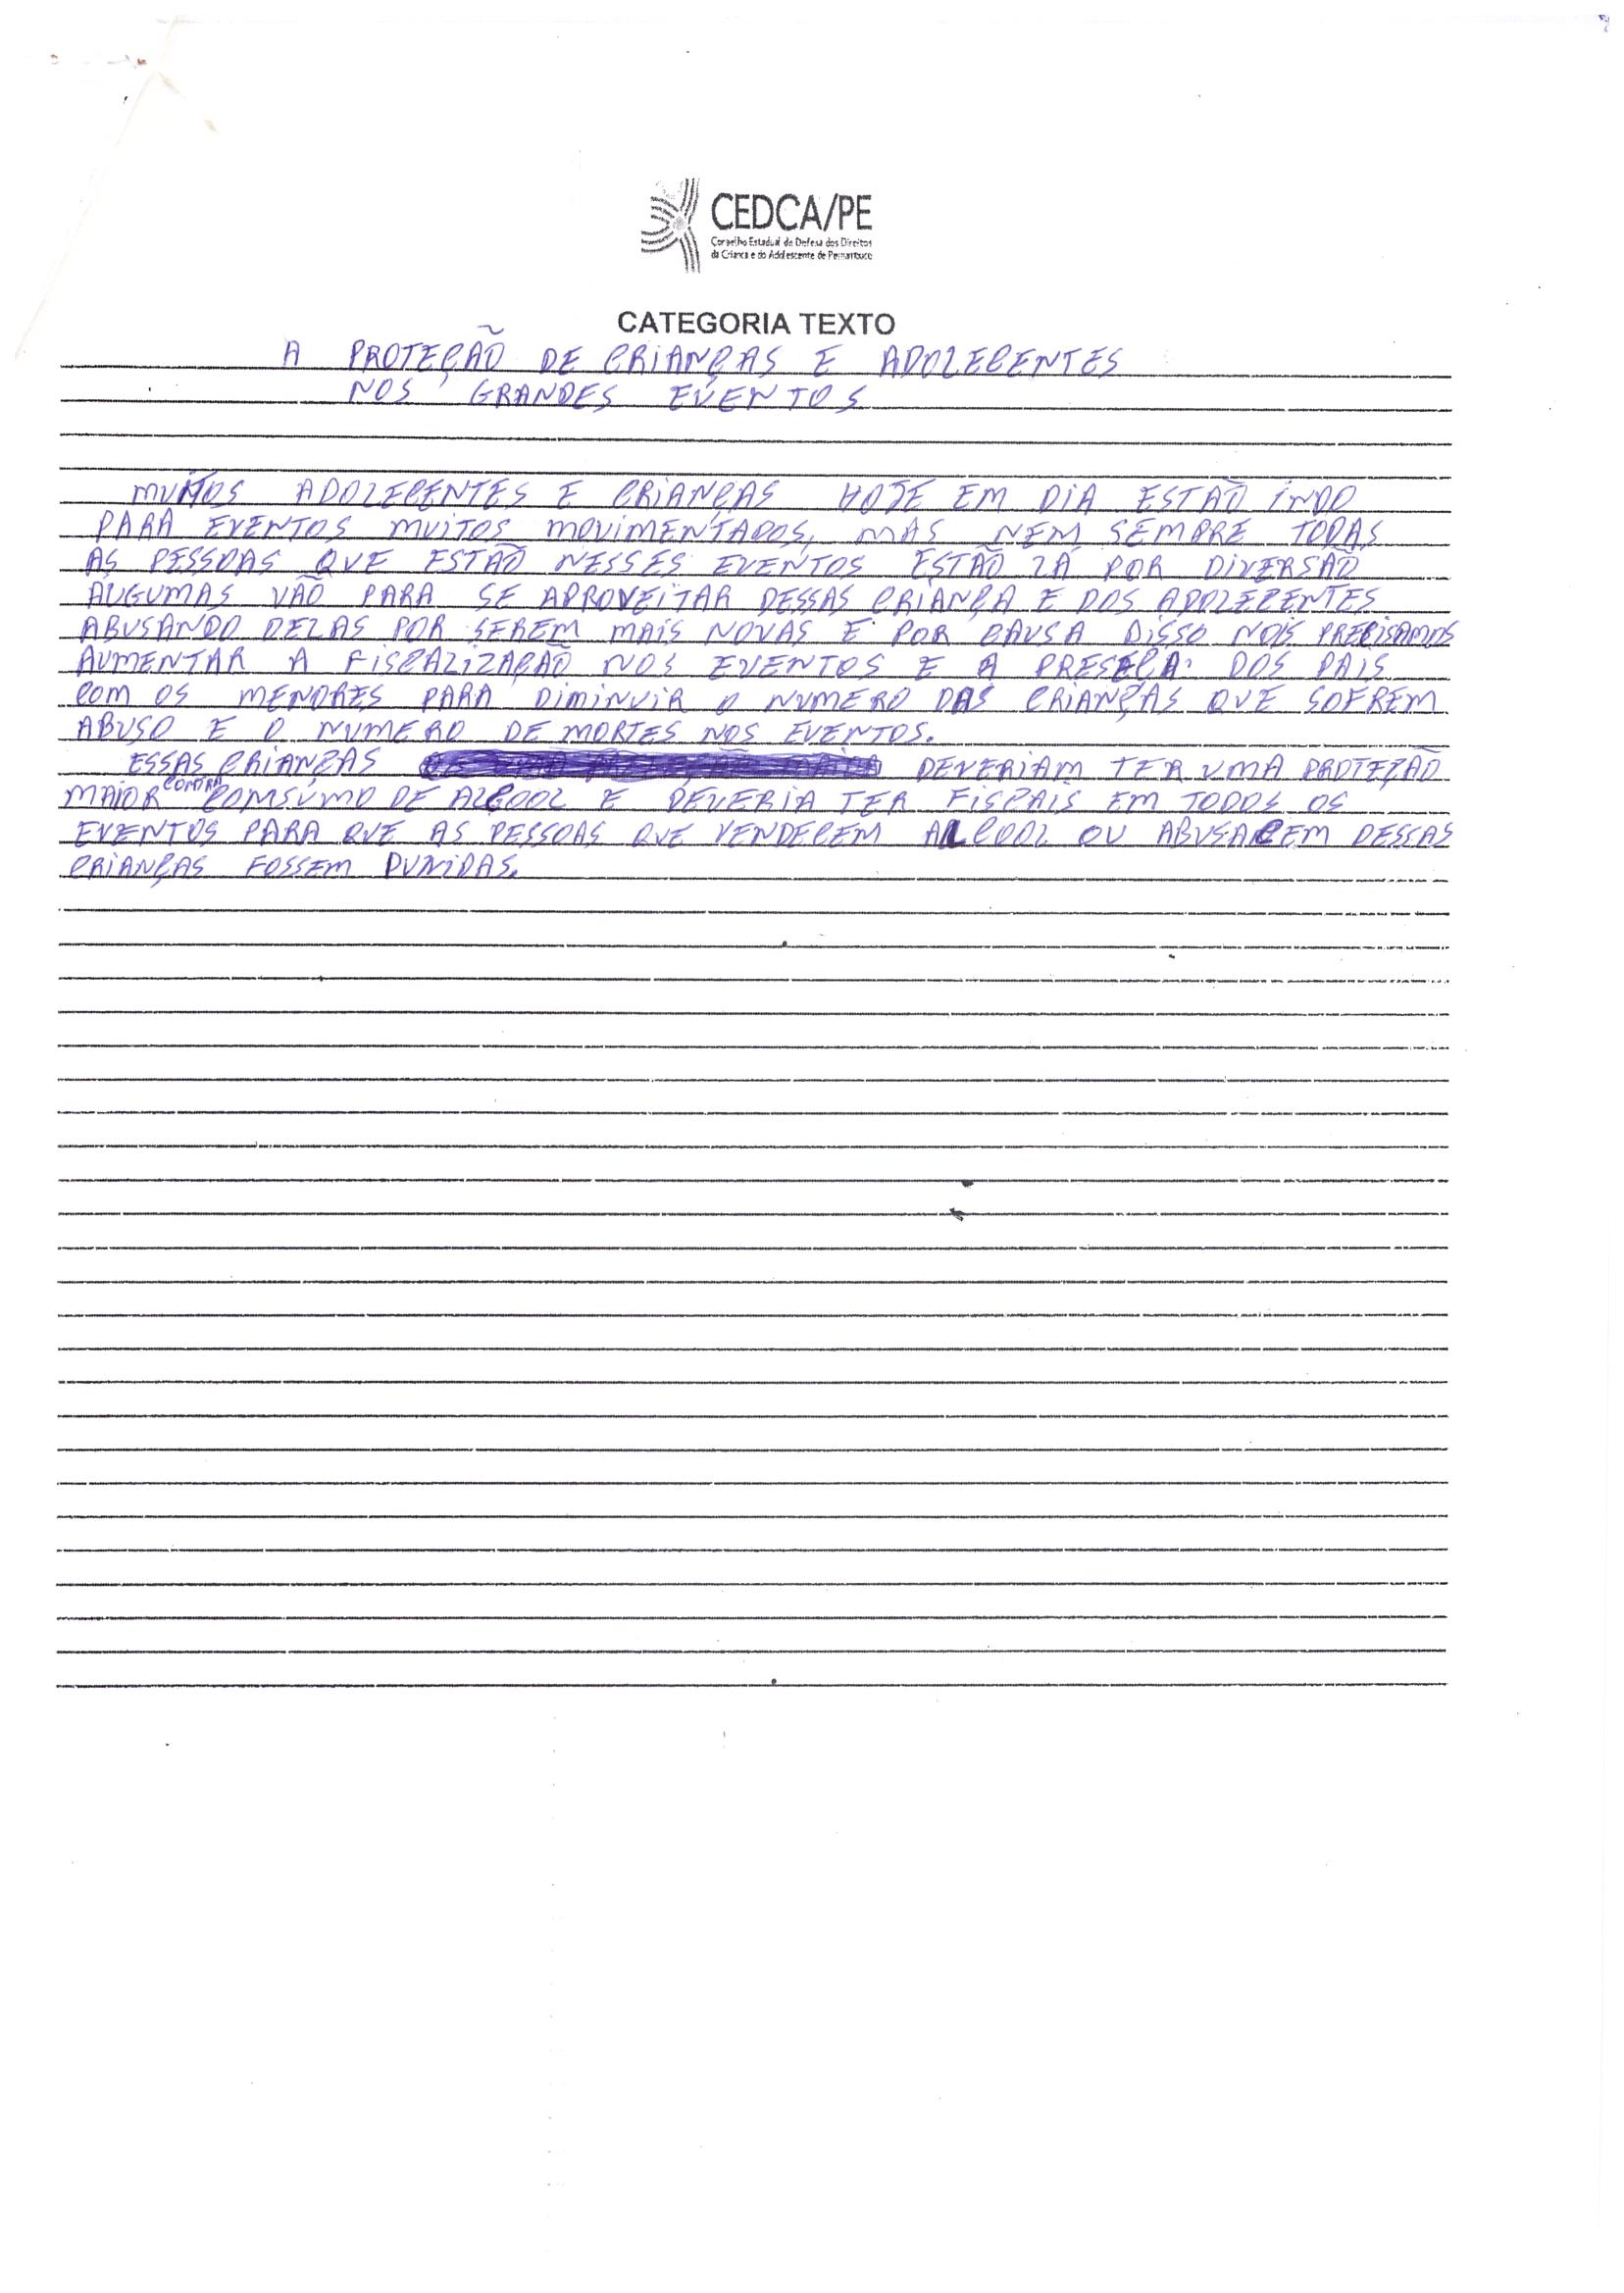 CEDCA/PE
Conselho Estadual de Defesa dos Direitos
da Criança e do Adolescente de Pernambuco
CATEGORIA TEXTO
A PROTEÇÃO DE CRIANÇAS E ADOLECENTES
NOS GRANDES EVENTOS
MUITOS ADOLECENTES E CRIANÇAS HOJE EM DIA ESTÃO INDO
PARA EVENTOS MUITOS MOVIMENTADOS, MAS NEM SEMPRE TODAS
AS PESSOAS QUE ESTÃO NESSES EVENTOS ESTÃO LÁ POR DIVERSÃO
AUGUMAS VÃO PARA SE APROVEITAR DESSAS CRIANÇA E DOS ADOLECENTES
ABUSANDO DELAS POR SEREM MAIS NOVAS E POR CAUSA DISSO NOIS PRECISAMOS
AUMENTAR A FISCALIZAÇÃO NOS EVENTOS E A PRESEÇA DOS PAIS
COM OS MENORES PARA DIMINUIR O NUMERO DAS CRIANÇAS QUE SOFREM
ABUSO E O NUMERO DE MORTES NOS EVENTOS.
ESSAS CRIANÇAS DEVERIAM TER UMA PROTEÇÃO
MAIOR CONTRA CONSUMO DE ALCOOL E DEVERIA TER FISCAIS EM TODOS OS
EVENTOS PARA QUE AS PESSOAS QUE VENDECEM ALCOOL OU ABUSACEM DESSAS
CRIANÇAS FOSSEM PUNIDAS.